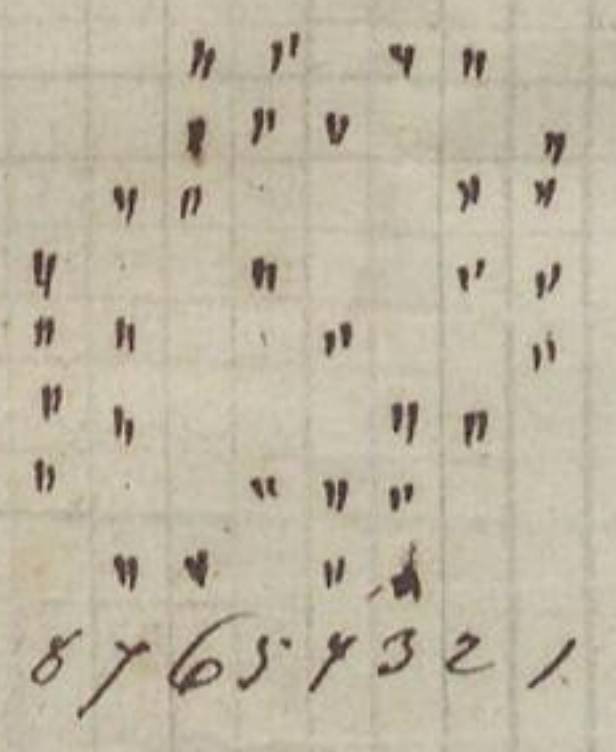 " " " "
" " " "
" " " "
" " " "
" " " "
" " " "
" " " "
" " " "
8 7 6 5 4 3 2 1